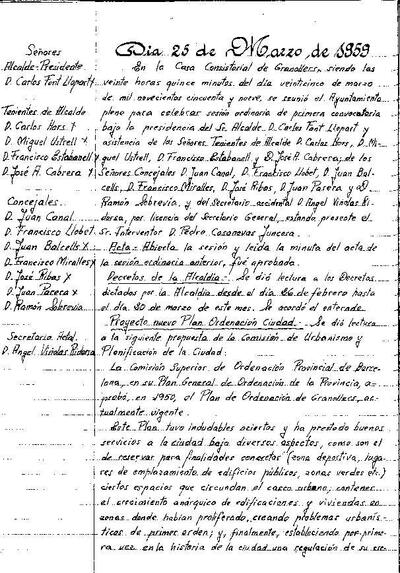 Señores
Alcalde-Presidente
D. Carlos Font Llopart
Tenientes de Alcalde
D. Carlos Hors
D. Miguel Ustrell X
D. Francisco Estabanell X
D. José A. Cabrera X
Concejales
D. Juan Canal
D. Francisco Llobet
D. Juan Balcells X
D. Francisco Miralles X
D. José Ribas X
D. Juan Parera X
D. Ramón Sobrevia
Secretario Actal.
D. Angel Viñolas Ridorsa
Dia 25 de Marzo de 1959
En la Casa Consistorial de Granollers, siendo las
veinte horas quince minutos del día veinticinco de marzo
de mil novecientos cincuenta y nueve, se reunió el Ayuntamiento
pleno para celebrar sesión ordinaria de primera convocatoria
bajo la presidencia del Sr. Alcalde D. Carlos Font Llopart y
asistencia de los Señores Tenientes de Alcalde D. Carlos Hors, D. Mi-
guel Ustrell, D. Francisco Estabanell y D. José A. Cabrera; de los
Señores Concejales D. Juan Canal, D. Francisco Llobet, D. Juan Bal-
cells, D. Francisco Miralles, D. José Ribas, D. Juan Parera y D.
Ramón Sobrevia, y del Secretario accidental D. Angel Viñolas Ri-
dorsa, por licencia del Secretario General, estando presente el
Sr. Interventor D. Pedro Casanovas Juncera.
Acta.- Abierta la sesión y leída la minuta del acta de
la sesión ordinaria anterior, fué aprobada.
Decretos de la Alcaldía.- Se dió lectura a los Decretos
dictados por la Alcaldía desde el día 26 de febrero hasta
el día 20 de marzo de este mes. Se acordó el enterado.
Proyecto nuevo Plan Ordenación Ciudad.- Se dió lectura
a la siguiente propuesta de la Comisión de Urbanismo y
Planificación de la Ciudad:
La Comisión Superior de Ordenación Provincial de Barce-
lona, en su Plan General de Ordenación de la Provincia, a-
probó, en 1950, el Plan de Ordenación de Granollers, ac-
tualmente vigente.
Este Plan tuvo indudables aciertos y ha prestado buenos
servicios a la ciudad bajo diversos aspectos, como son el
de reservar para finalidades concretas (zona deportiva, luga-
res de emplazamiento de edificios públicos, zonas verdes etc.)
ciertos espacios que circundan el casco urbano; contener
el crecimiento anárquico de edificaciones y viviendas en
zonas donde habían proliferado, creando problemas urbanís-
ticos de primer orden; y, finalmente, estableciendo por prime-
ra vez en la historia de la ciudad una regulación de su cre-